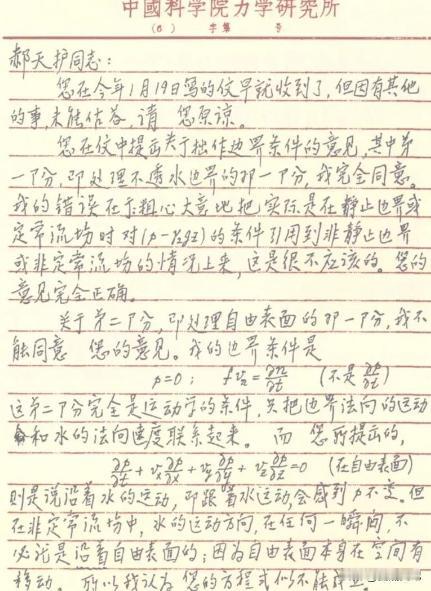 中國科学院力学研究所
(6) 字第 号
郝天护同志：
您在今年1月19日写的信早就收到了，但因有其他
的事，未能作答，请 您原谅。
您在信中提出关于拙作边界条件的意见，其中第
一部分，即处理不透水边界的那一部分，我完全同意。
我的错误在于粗心大意地把实际是在静止边界或
定常流场时对(p-γgz)的条件引用到非静止边界
或非定常流场的情况上来，这是很不应该的。您的
意见完全正确。
关于第二部分，即处理自由表面的那一部分，我不
能同意 您的意见。我的边界条件是
p=0； fv_n=∂n/∂t (不是∂p/∂t)
这第二部分完全是运动学的条件，只把边界法向的运动
和水的法向速度联系起来。而 您所提出的，
∂p/∂t+v_x∂p/∂x+v_y∂p/∂y+v_z∂p/∂z=0 (在自由表面)
则是说沿着水的运动，即跟着水运动，会感到p不变。但
在非定常流场中，水的运动方向，在任何一瞬间，不
必定是沿着自由表面的；因为自由表面本身在空间有
移动。所以我认为 您的方程式似不能成立。